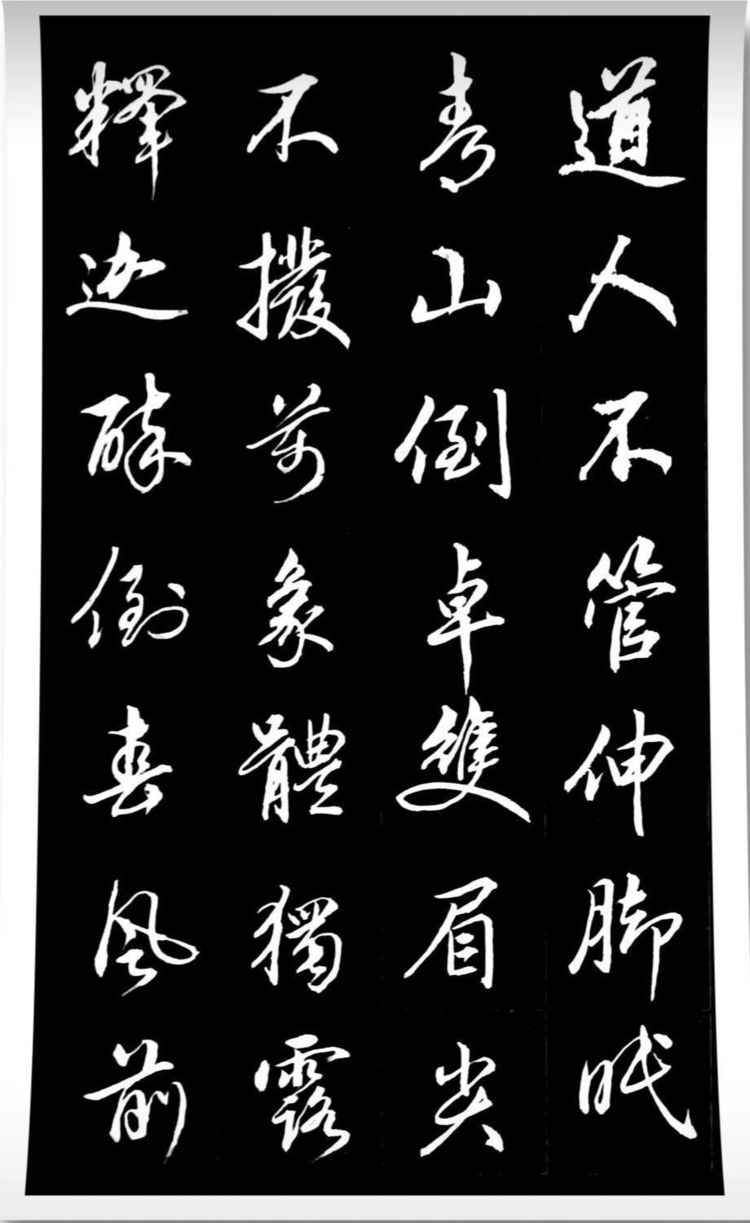 道人不管伸脚眠
青山倒卓雙眉尖
不撥萬象體獨露
釋迦醉倒春風前